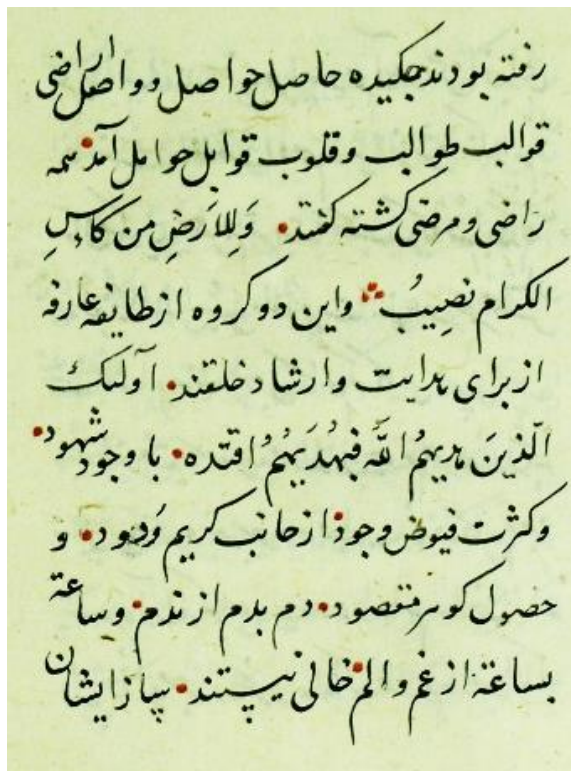 رفته بودند چکیده حاصل حواصل و واصل اراضی
قوالب طوالب و قلوب قوابل حوامل آمد همه
راضی و مرضی کشته کفتند وَلِلاَرضِ من کاٴسِ
الکرام نصِیبُ واین دو کروه از طایفه عارفه
از برای هدایت وارشاد خلقند آولئک
الّذینَ هدیهُم اللّه فبهُدَیهُم اقتده با وجود شهود
وکثرت فیوض وجود از جانب کریم وَدود و
حصول کوهر مقصود دم بدم از ندم وساعة
بساعة از غم والم خالی نیستند سپاز ایشان